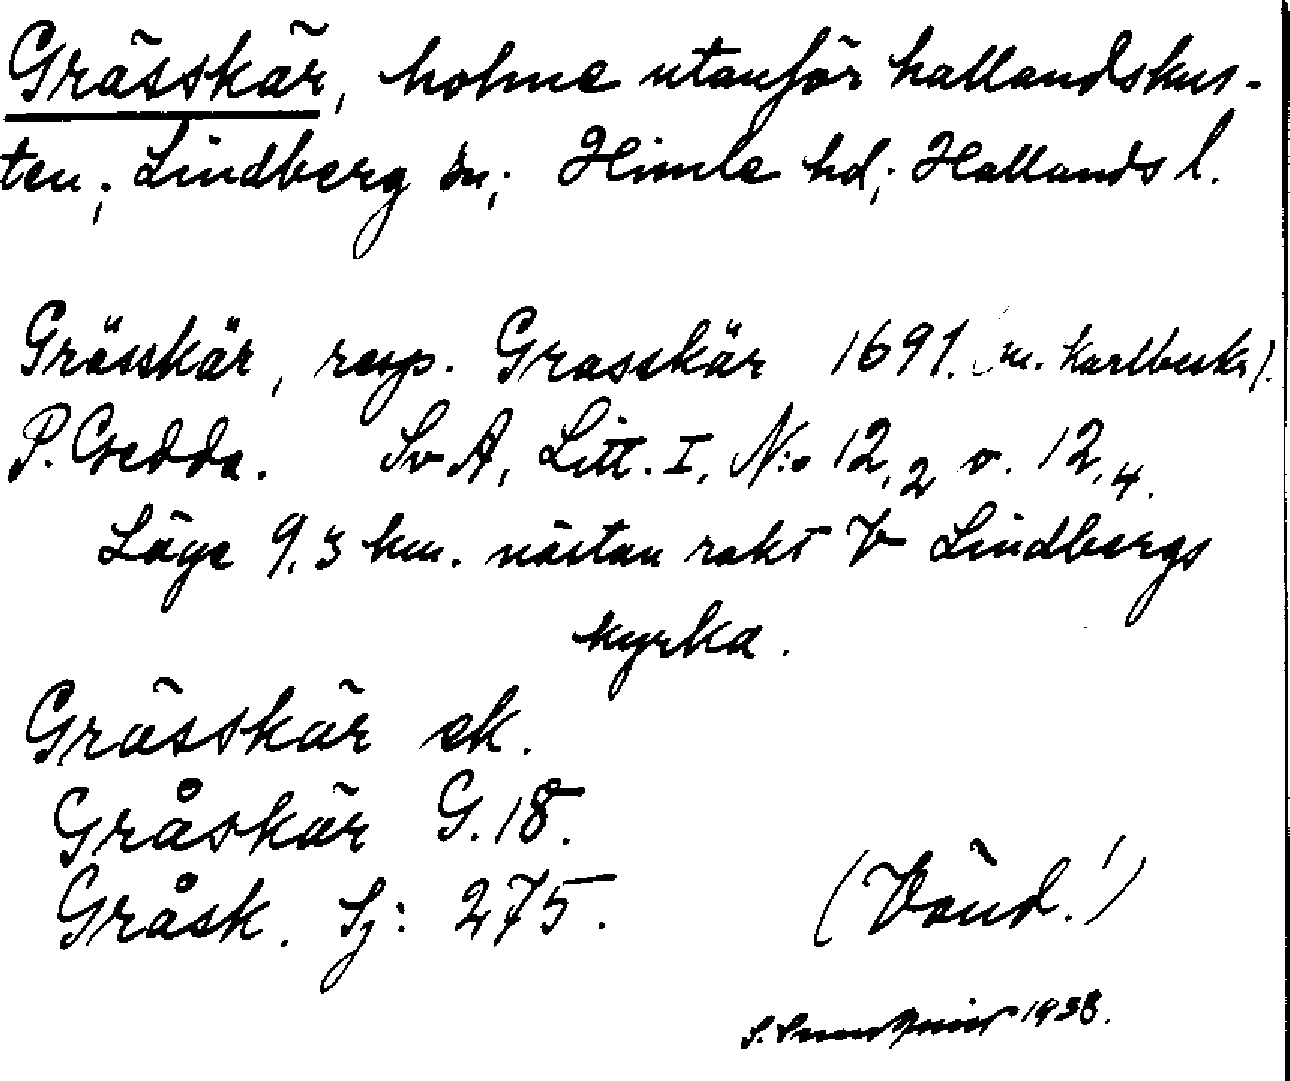 Grässkär, holme utanför hallandskus-
ten; Lindberg sn; Himle hd; Hallands l.
Grässkär, resp. Grasskär 1691. (m. karlbesk.).
P. Gedda. Sv A, Litt. I, N:o 12,2 o. 12,4.
Läge 9,3 km. nästan rakt V Lindbergs
kyrka.
Grässkär ek.
Gråskär G. 18.
Gråsk. Sj: 275.
(Vänd!)
S. 1938.